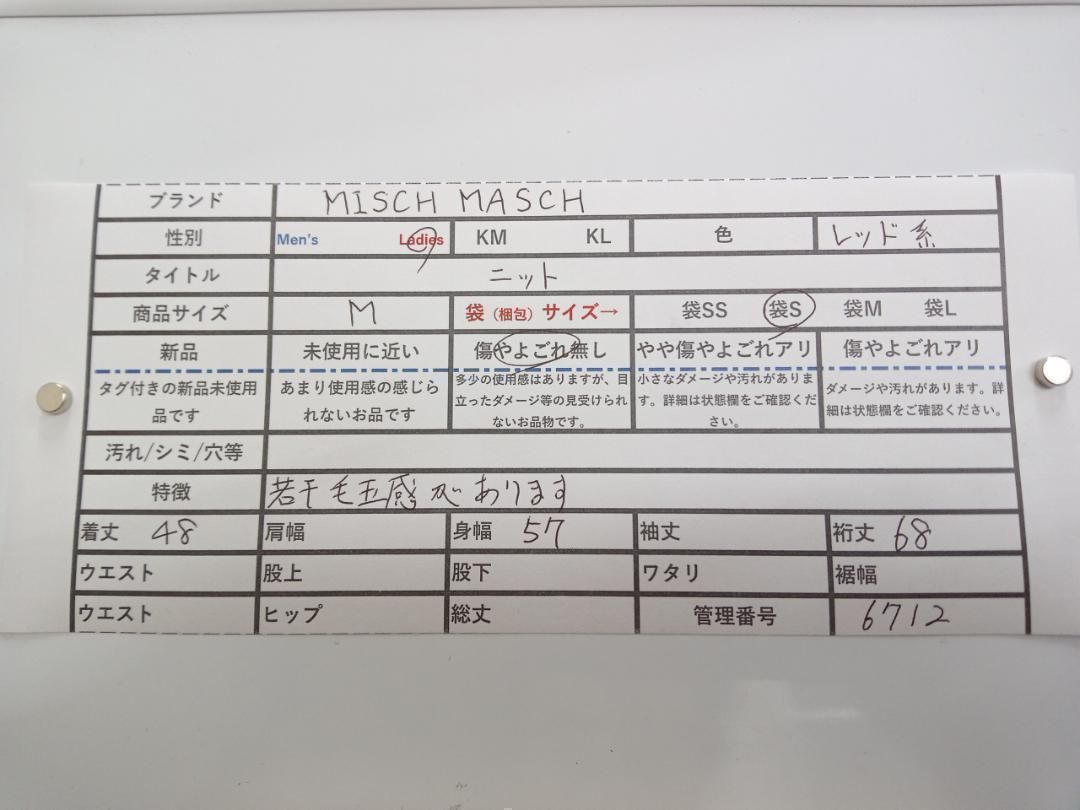 ブランド MISCH MASCH
性別 Men's Ladies KM KL 色 レッド系
タイトル ニット
商品サイズ M 袋（梱包）サイズ→ 袋SS 袋S 袋M 袋L
新品 未使用に近い 傷やよごれ無し やや傷やよごれアリ 傷やよごれアリ
タグ付きの新品未使用品です あまり使用感の感じられないお品です 多少の使用感はありますが、目立ったダメージ等の見受けられないお品物です。 小さなダメージや汚れがあります。詳細は状態欄をご確認ください。 ダメージや汚れがあります。詳細は状態欄をご確認ください。
汚れ/シミ/穴等
特徴 若干毛玉感があります
着丈 48 肩幅 身幅 57 袖丈 裄丈 68
ウエスト 股上 股下 ワタリ 裾幅
ウエスト ヒップ 総丈 管理番号 6712